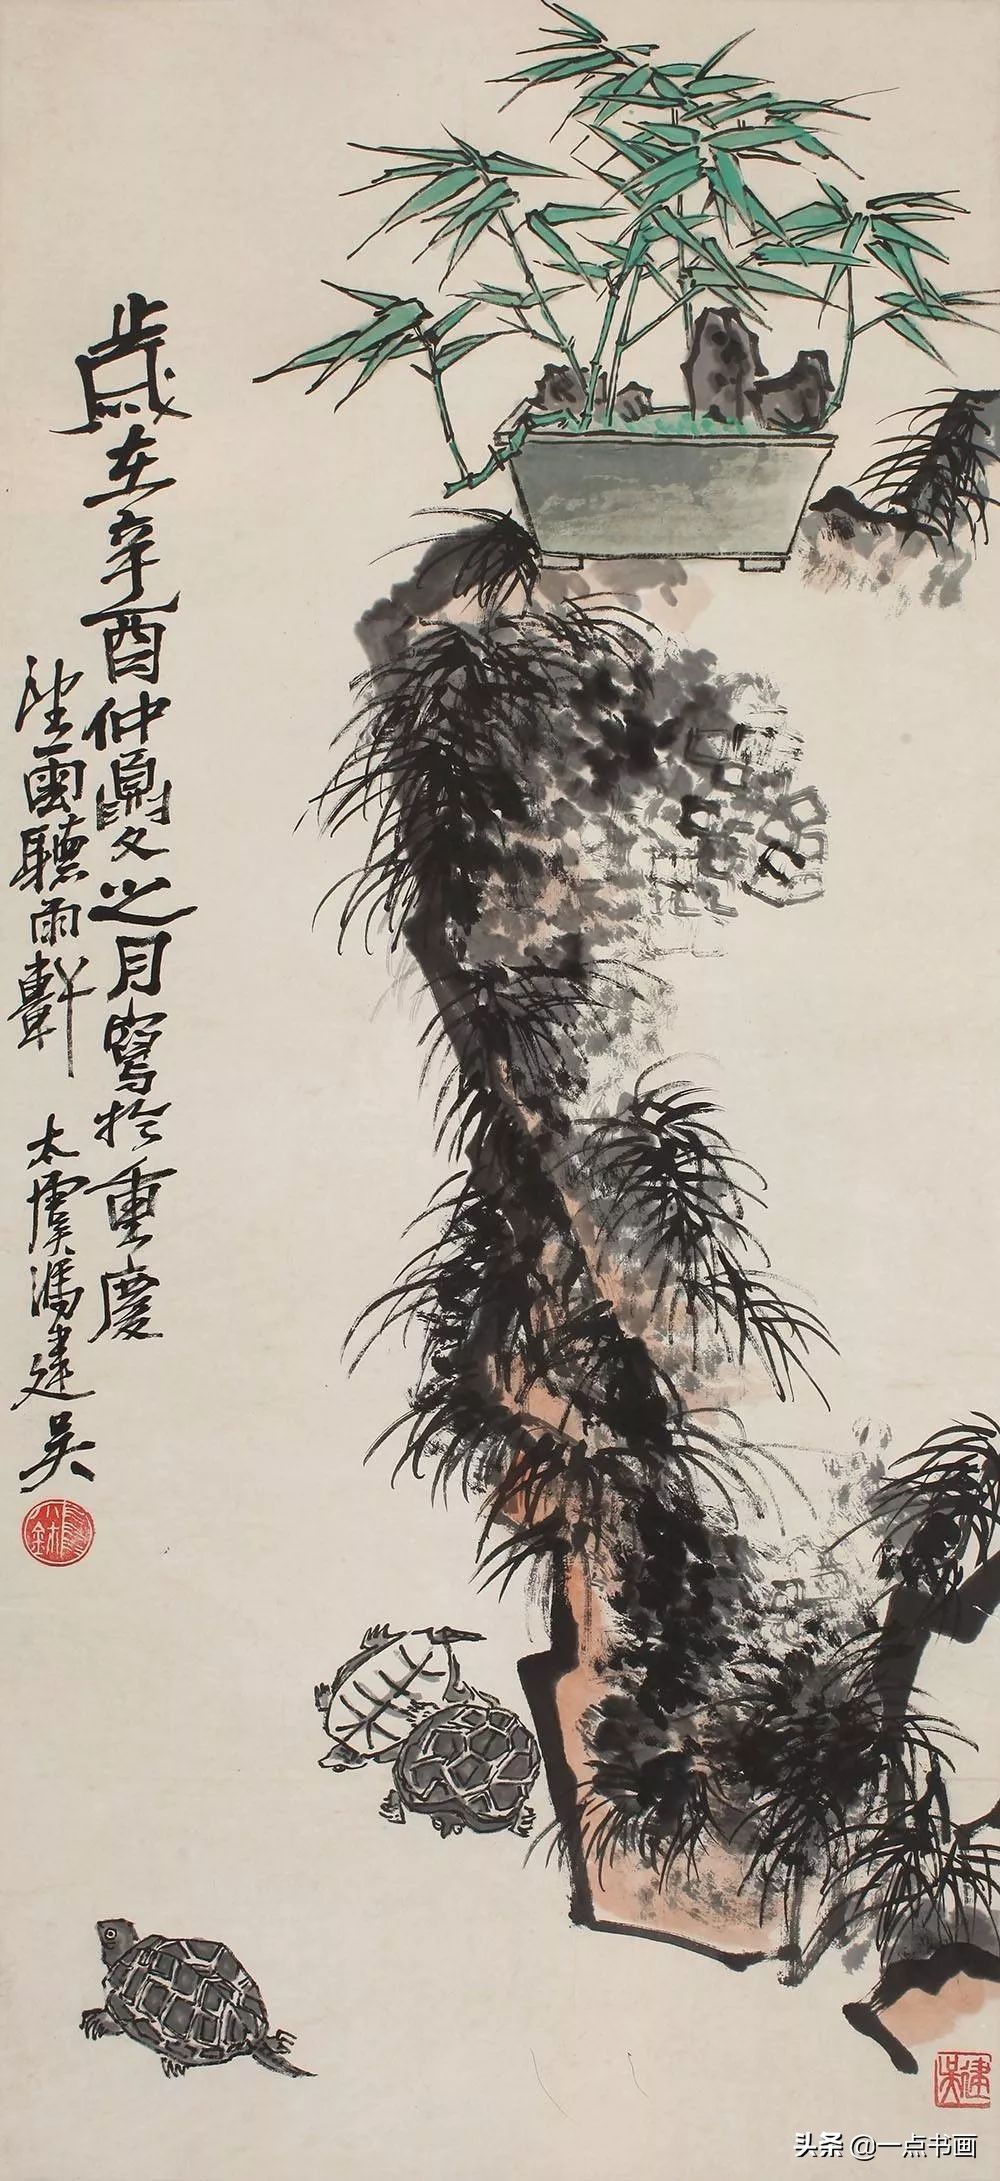 歲在辛酉仲夏之月寫於重慶
望雲聽雨軒 太虞馮建吴
建吴
头条 @一点书画